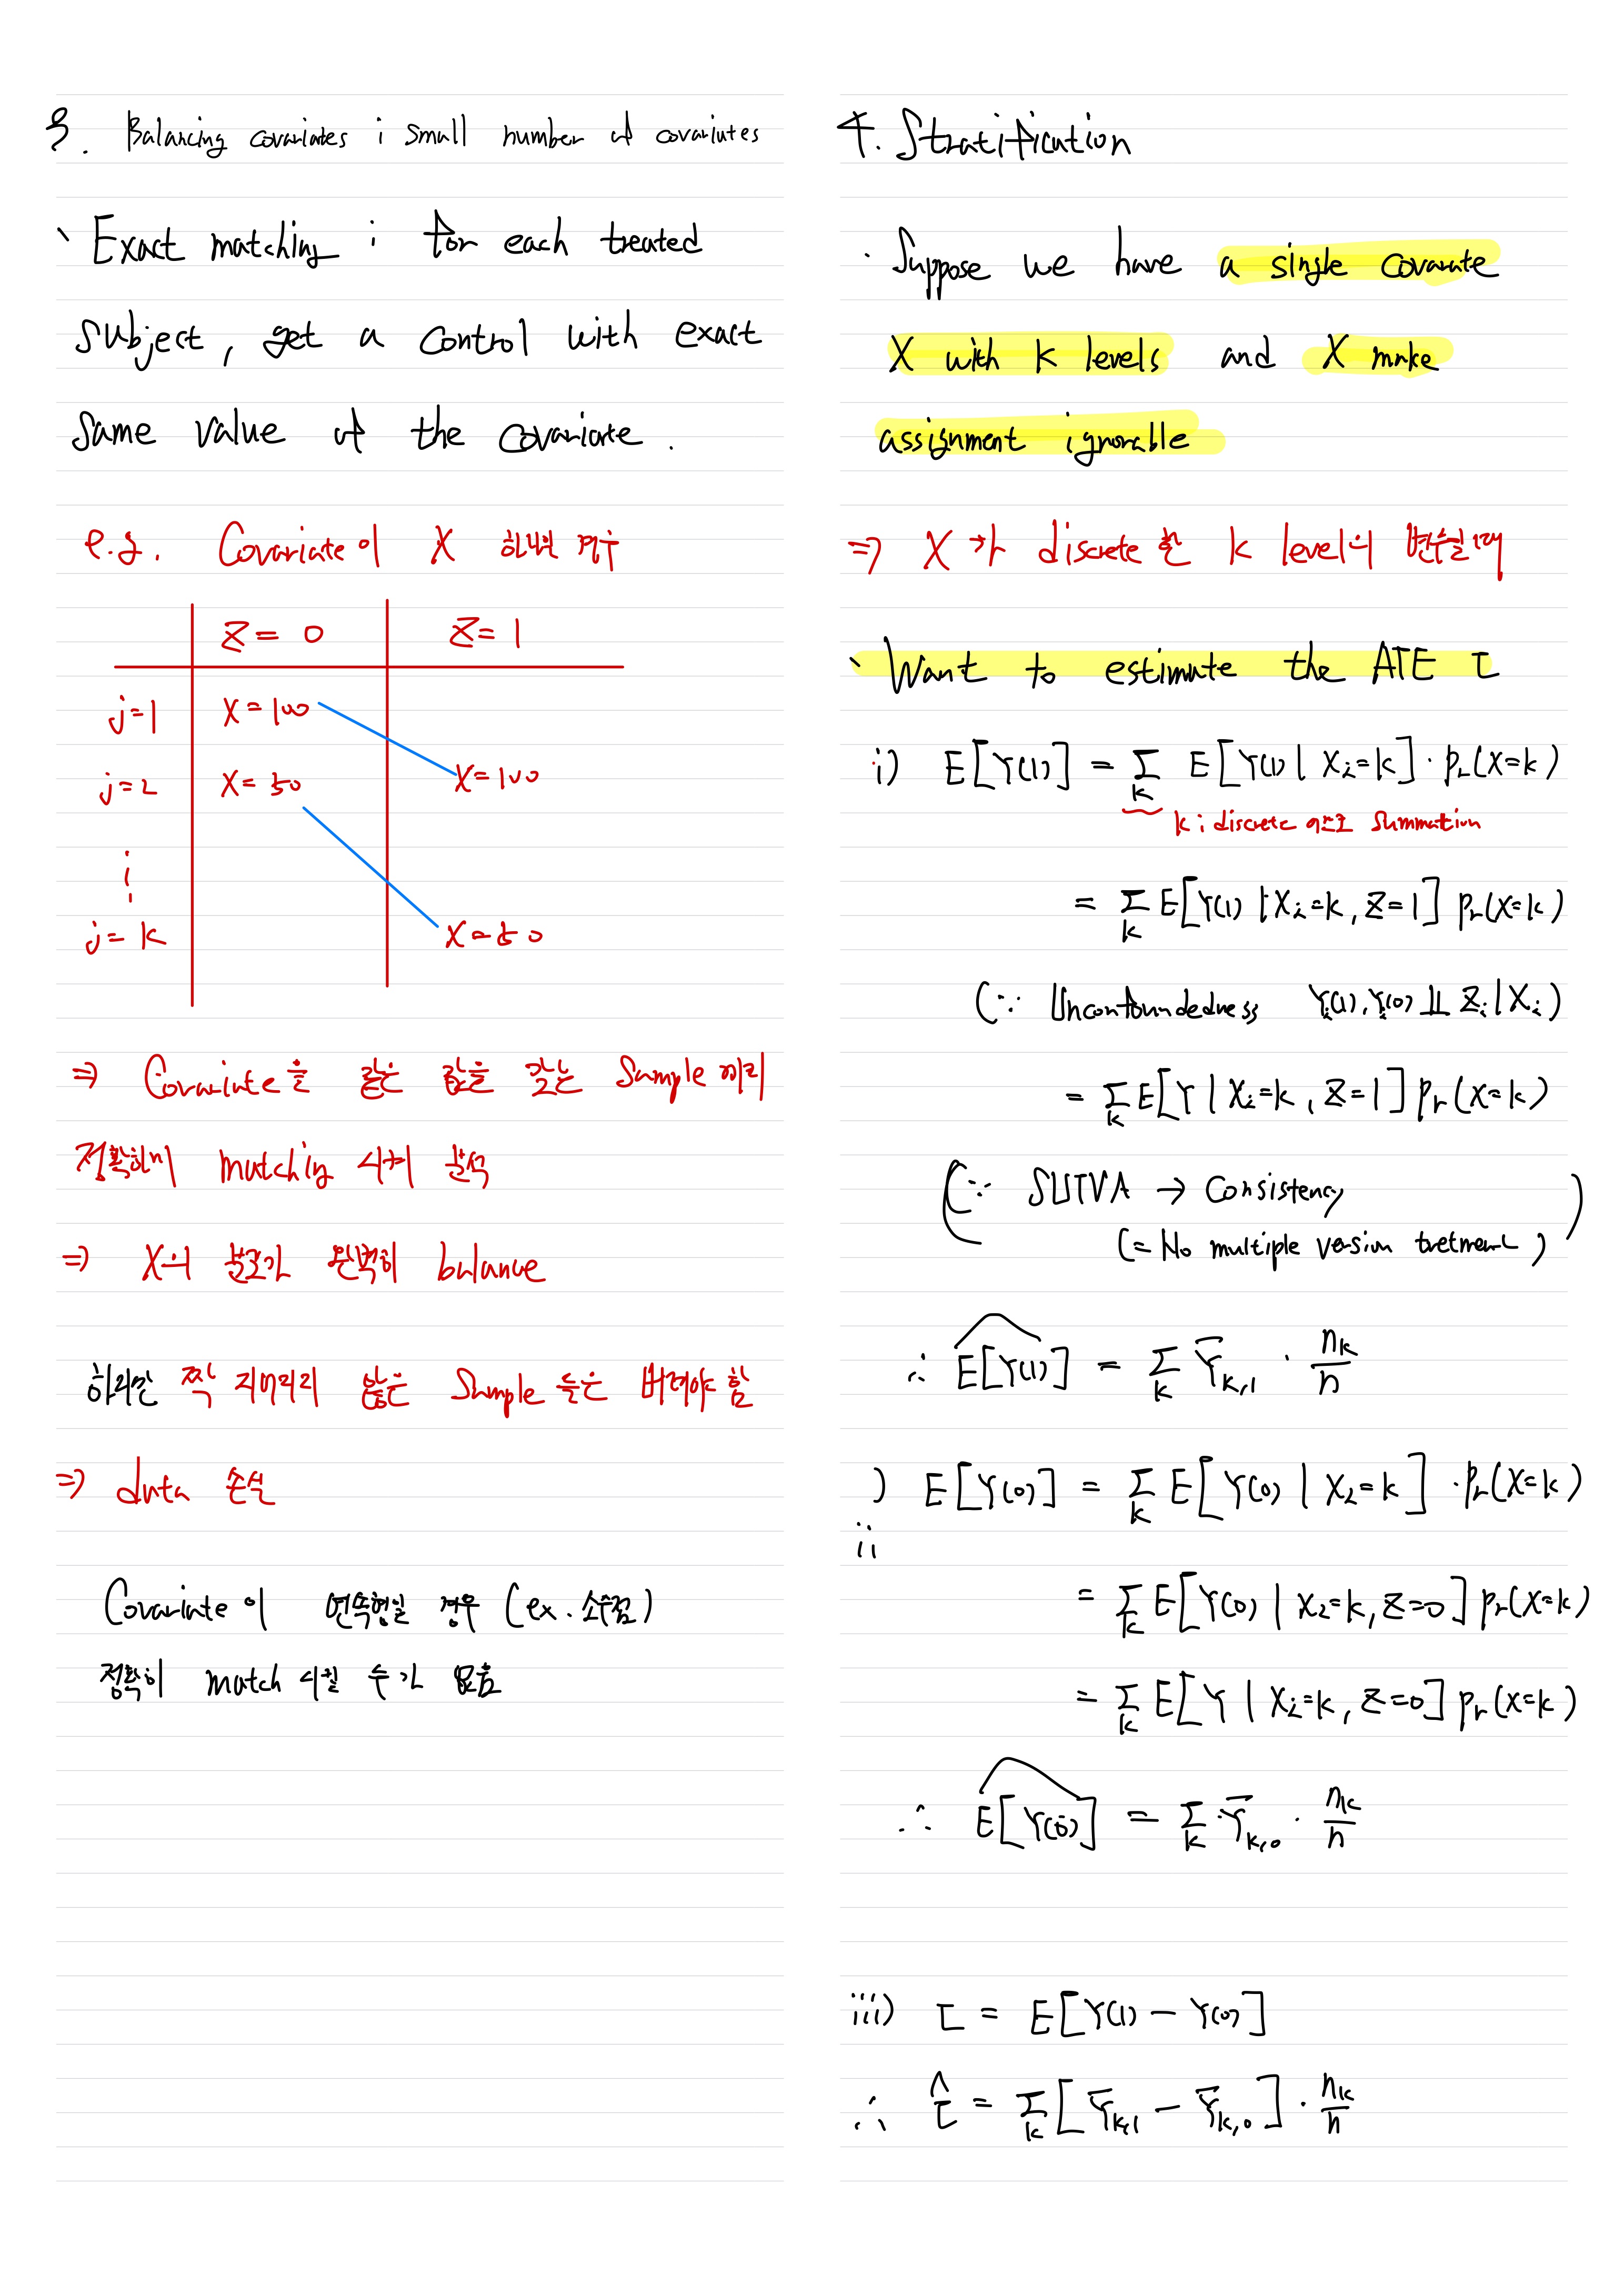 3. Balancing covariates ; small number of covariates
· Exact matching ; for each treated
subject, get a control with exact
same value of the covariate.
e.g. Covariate이 X 하나인 경우
Z = 0 Z = 1
j=1 X=100
j=2 X=50 X=100
⋮
j=k X=50
⇒ Covariate을 같은 값을 갖는 Sample 끼리
정확하게 matching 시켜 분석
⇒ X의 분포가 완벽히 balance
하지만 짝 지어지지 않은 Sample 들은 버려야 함
⇒ data 손실
Covariate이 연속형일 경우 (ex. 소수점)
정확히 match 시킬 수가 없음
4. Stratification
· Suppose we have a single covariate
X with K levels and X make
assignment ignorable
⇒ X가 discrete한 K level의 변수일 때
· Want to estimate the ATE τ
i) E[Y(1)] = Σ_k E[Y(1) | X_i=k] · Pr(X=k)
k ; discrete 이므로 Summation
= Σ_k E[Y(1) | X_i=k, Z=1] Pr(X=k)
(∵ Unconfoundedness Y_i(1), Y_i(0) ⫫ Z_i | X_i)
= Σ_k E[Y | X_i=k, Z=1] Pr(X=k)
(∵ SUTVA → Consistency
(= No multiple version tretment))
∴ \widehat{E[Y(1)]} = Σ_k Ȳ_{k,1} · n_k/n
ii) E[Y(0)] = Σ_k E[Y(0) | X_i=k] · Pr(X=k)
= Σ_k E[Y(0) | X_i=k, Z=0] Pr(X=k)
= Σ_k E[Y | X_i=k, Z=0] Pr(X=k)
∴ \widehat{E[Y(0)]} = Σ_k Ȳ_{k,0} · n_k/n
iii) τ = E[Y(1) − Y(0)]
∴ τ̂ = Σ_k [Ȳ_{k,1} − Ȳ_{k,0}] · n_k/n